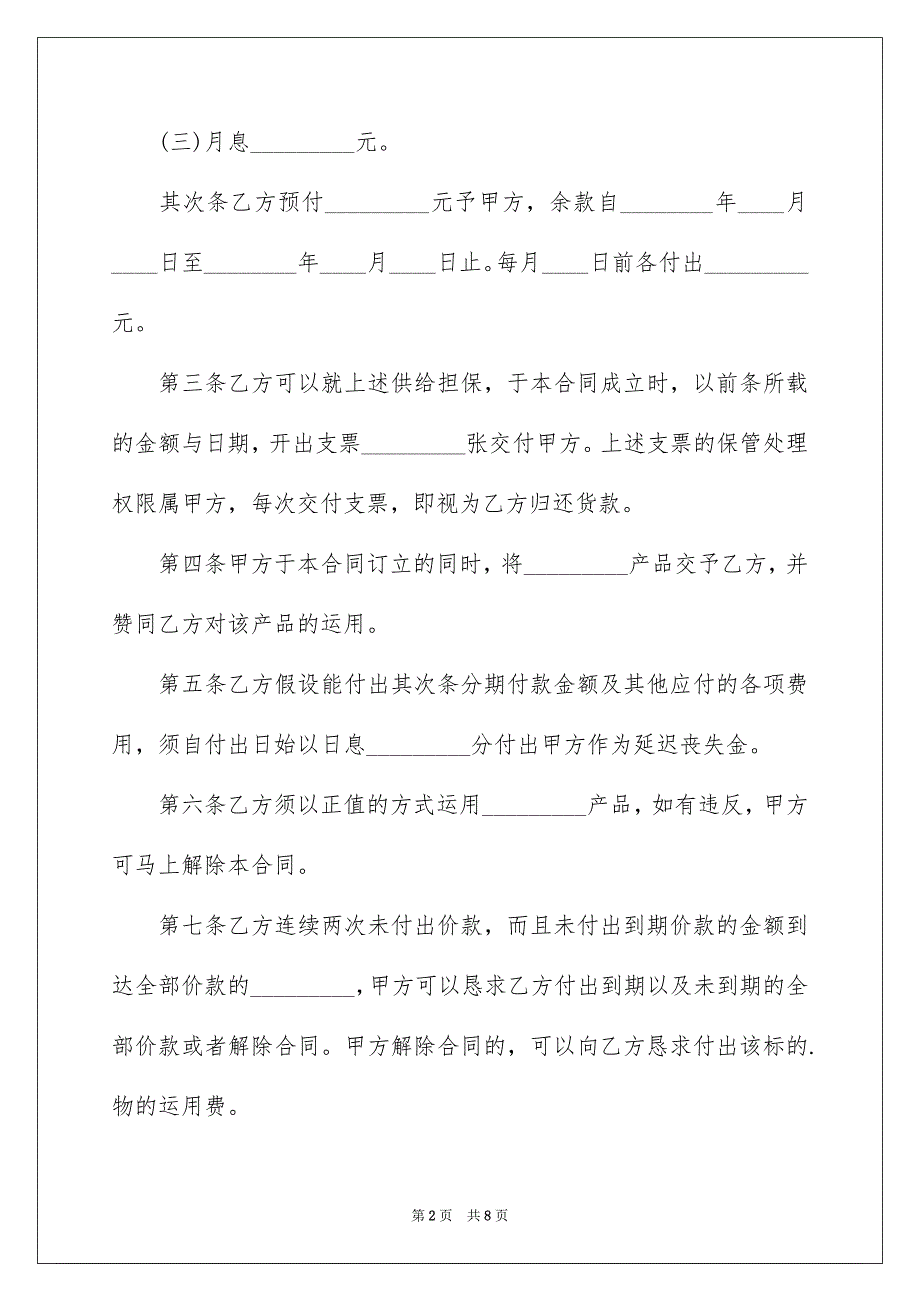 (三)月息_________元。
其次条乙方预付_________元予甲方，余款自________年____月
____日至________年____月____日止。每月____日前各付出_________
元。
第三条乙方可以就上述供给担保，于本合同成立时，以前条所载
的金额与日期，开出支票_________张交付甲方。上述支票的保管处理
权限属甲方，每次交付支票，即视为乙方归还货款。
第四条甲方于本合同订立的同时，将_________产品交予乙方，并
赞同乙方对该产品的运用。
第五条乙方假设能付出其次条分期付款金额及其他应付的各项费
用，须自付出日始以日息_________分付出甲方作为延迟丧失金。
第六条乙方须以正值的方式运用_________产品，如有违反，甲方
可马上解除本合同。
第七条乙方连续两次未付出价款，而且未付出到期价款的金额到
达全部价款的_________，甲方可以恳求乙方付出到期以及未到期的全
部价款或者解除合同。甲方解除合同的，可以向乙方恳求付出该标的.
物的运用费。
第 2 页 共 8 页